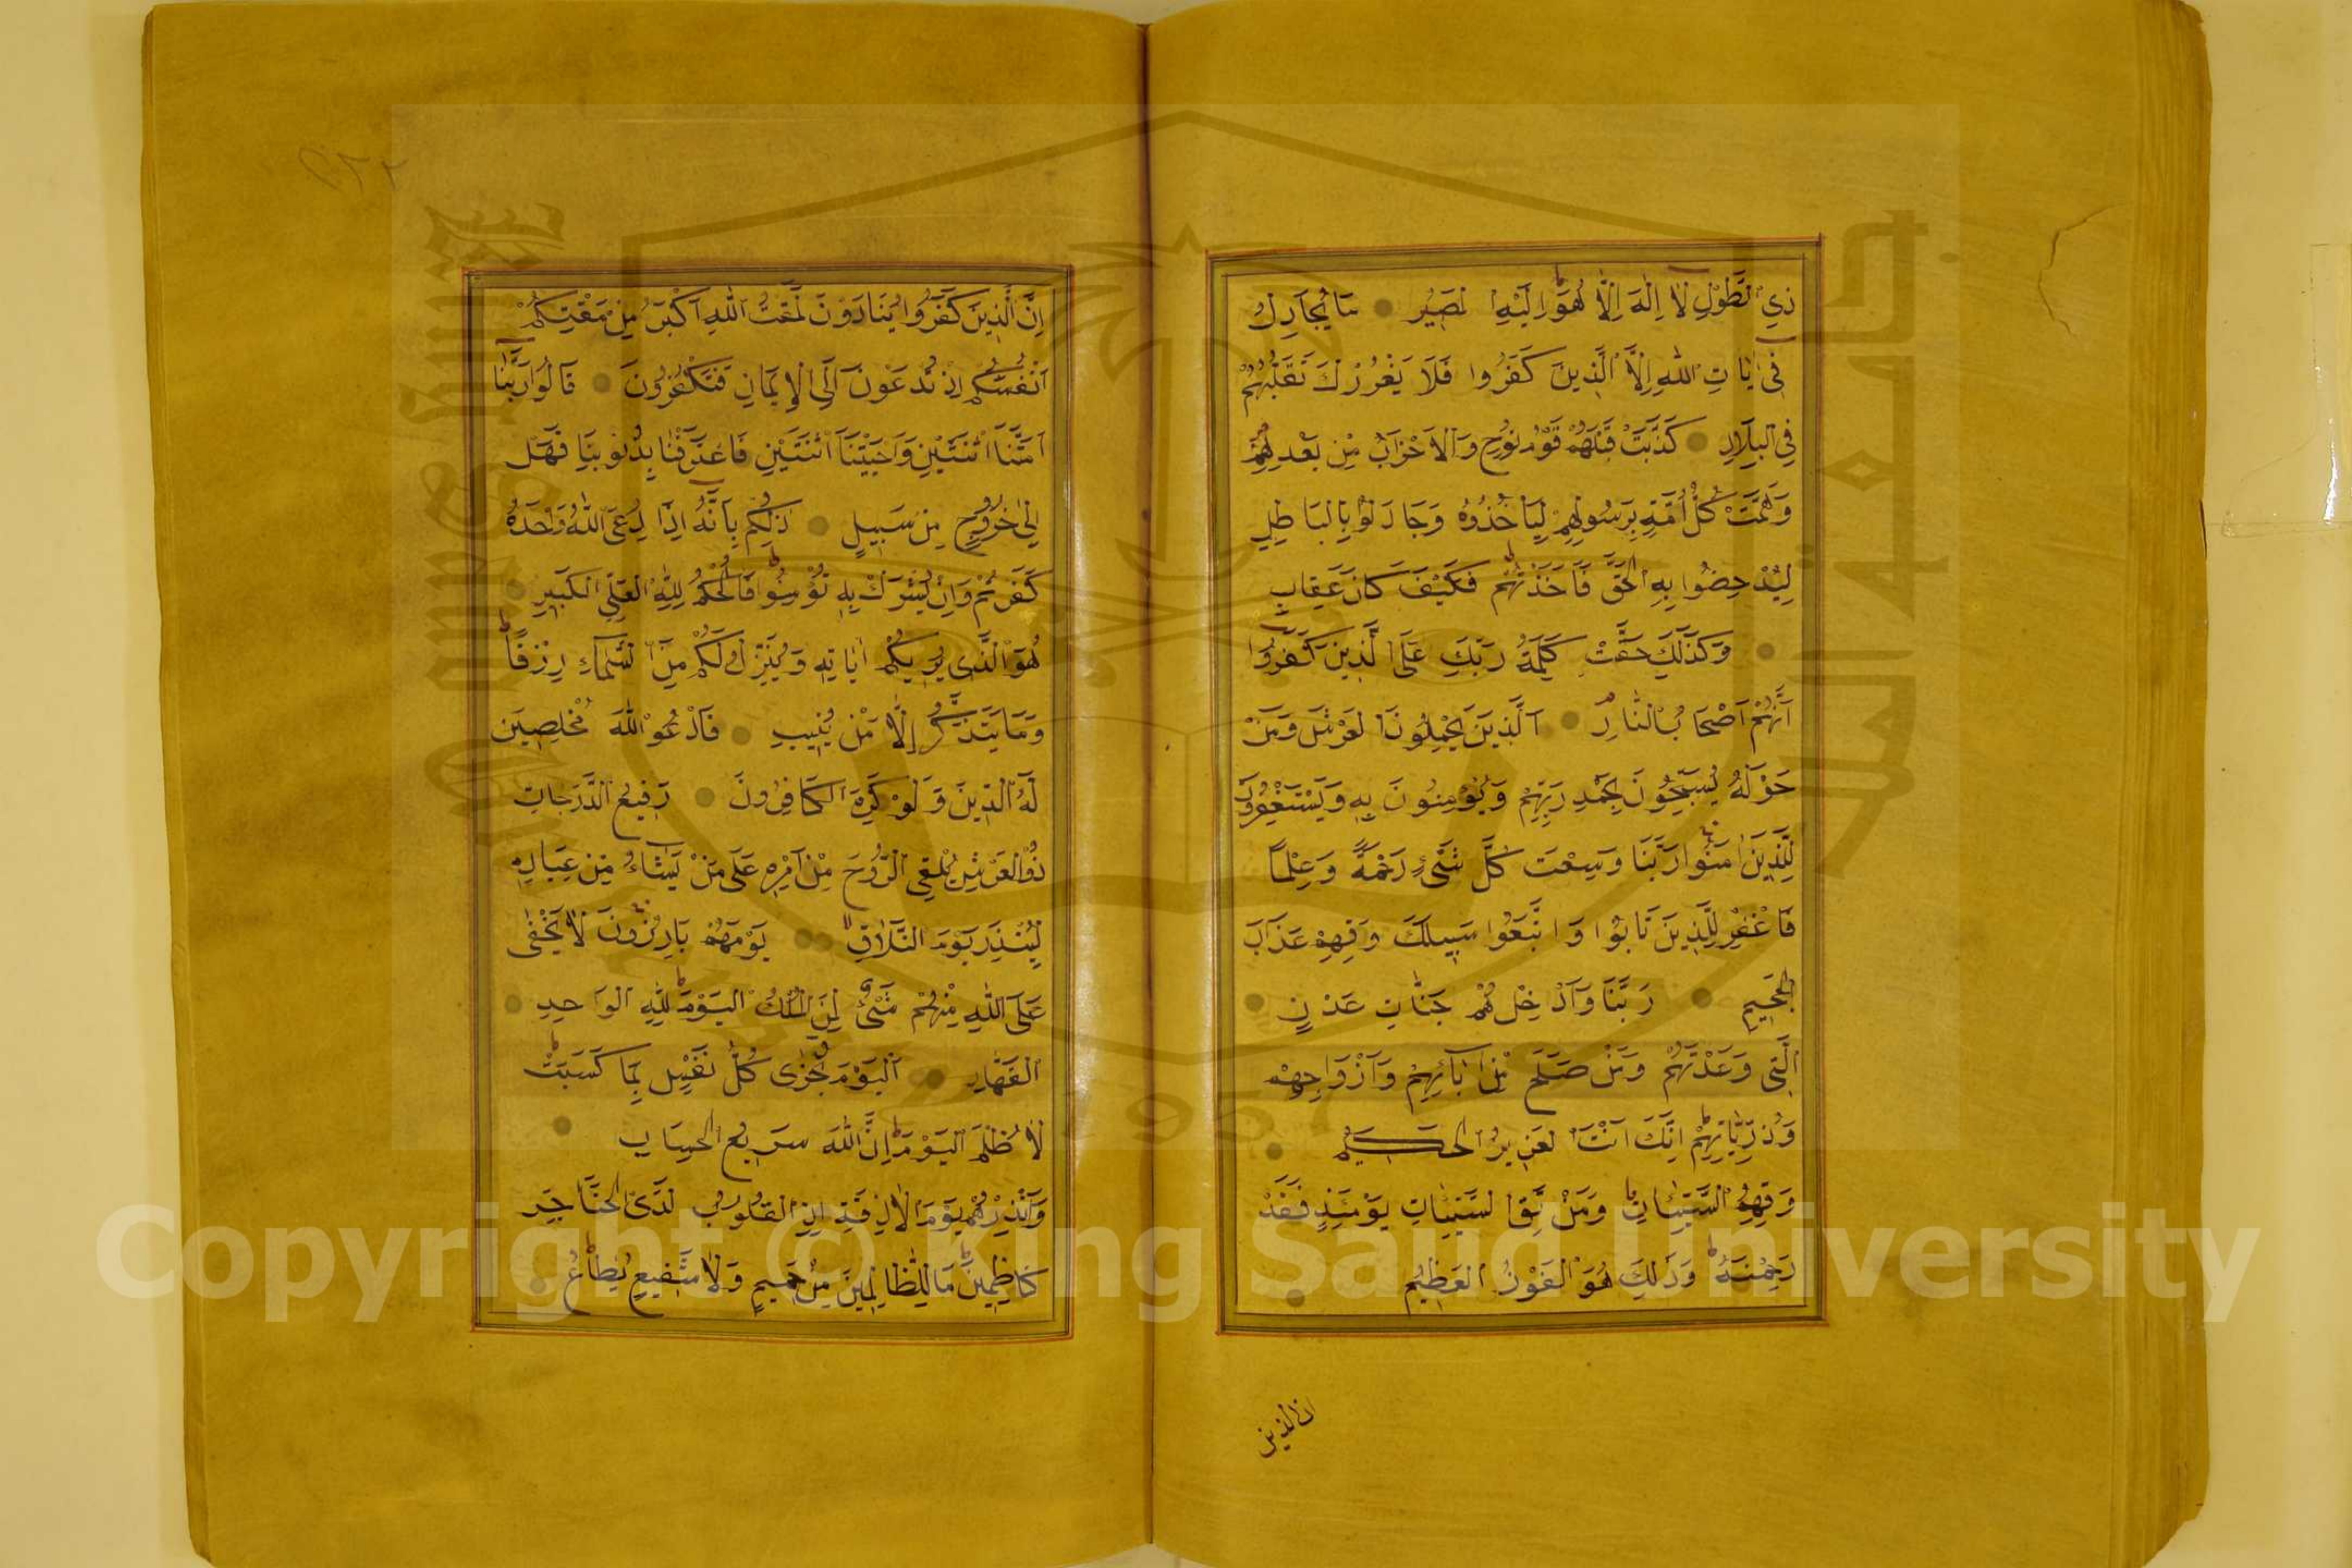 ذِي الطَّوْلِ لَا اِلٰهَ اِلَّا هُوَ اِلَيْهِ الْمَصِيرُ مَا يُجَادِلُ
فِي اٰيَاتِ اللّٰهِ اِلَّا الَّذِينَ كَفَرُوا فَلَا يَغْرُرْكَ تَقَلُّبُهُمْ
فِي الْبِلَادِ كَذَّبَتْ قَبْلَهُمْ قَوْمُ نُوحٍ وَالْاَحْزَابُ مِنْ بَعْدِهِمْ
وَهَمَّتْ كُلُّ اُمَّةٍ بِرَسُولِهِمْ لِيَاْخُذُوهُ وَجَادَلُوا بِالْبَاطِلِ
لِيُدْحِضُوا بِهِ الْحَقَّ فَاَخَذْتُهُمْ فَكَيْفَ كَانَ عِقَابِ
وَكَذٰلِكَ حَقَّتْ كَلِمَةُ رَبِّكَ عَلَى الَّذِينَ كَفَرُوا
اَنَّهُمْ اَصْحَابُ النَّارِ اَلَّذِينَ يَحْمِلُونَ الْعَرْشَ وَمَنْ
حَوْلَهُ يُسَبِّحُونَ بِحَمْدِ رَبِّهِمْ وَيُؤْمِنُونَ بِهِ وَيَسْتَغْفِرُونَ
لِلَّذِينَ اٰمَنُوا رَبَّنَا وَسِعْتَ كُلَّ شَيْءٍ رَحْمَةً وَعِلْمًا
فَاغْفِرْ لِلَّذِينَ تَابُوا وَاتَّبَعُوا سَبِيلَكَ وَقِهِمْ عَذَابَ
الْجَحِيمِ رَبَّنَا وَاَدْخِلْهُمْ جَنَّاتِ عَدْنٍ
الَّتِي وَعَدْتَهُمْ وَمَنْ صَلَحَ مِنْ اٰبَائِهِمْ وَاَزْوَاجِهِمْ
وَذُرِّيَّاتِهِمْ اِنَّكَ اَنْتَ الْعَزِيزُ الْحَكِيمُ
وَقِهِمُ السَّيِّئَاتِ وَمَنْ تَقِ السَّيِّئَاتِ يَوْمَئِذٍ فَقَدْ
رَحِمْتَهُ وَذٰلِكَ هُوَ الْفَوْزُ الْعَظِيمُ
ان الذين
اِنَّ الَّذِينَ كَفَرُوا يُنَادَوْنَ لَمَقْتُ اللّٰهِ اَكْبَرُ مِنْ مَقْتِكُمْ
اَنْفُسَكُمْ اِذْ تُدْعَوْنَ اِلَى الْاِيمَانِ فَتَكْفُرُونَ قَالُوا رَبَّنَا
اَمَتَّنَا اثْنَتَيْنِ وَاَحْيَيْتَنَا اثْنَتَيْنِ فَاعْتَرَفْنَا بِذُنُوبِنَا فَهَلْ
اِلٰى خُرُوجٍ مِنْ سَبِيلٍ ذٰلِكُمْ بِاَنَّهُ اِذَا دُعِيَ اللّٰهُ وَحْدَهُ
كَفَرْتُمْ وَاِنْ يُشْرَكْ بِهِ تُؤْمِنُوا فَالْحُكْمُ لِلّٰهِ الْعَلِيِّ الْكَبِيرِ
هُوَ الَّذِي يُرِيكُمْ اٰيَاتِهِ وَيُنَزِّلُ لَكُمْ مِنَ السَّمَاءِ رِزْقًا
وَمَا يَتَذَكَّرُ اِلَّا مَنْ يُنِيبُ فَادْعُوا اللّٰهَ مُخْلِصِينَ
لَهُ الدِّينَ وَلَوْ كَرِهَ الْكَافِرُونَ رَفِيعُ الدَّرَجَاتِ
ذُو الْعَرْشِ يُلْقِي الرُّوحَ مِنْ اَمْرِهِ عَلَى مَنْ يَشَاءُ مِنْ عِبَادِهِ
لِيُنْذِرَ يَوْمَ التَّلَاقِ يَوْمَهُمْ بَارِزُونَ لَا يَخْفٰى
عَلَى اللّٰهِ مِنْهُمْ شَيْءٌ لِمَنِ الْمُلْكُ الْيَوْمَ لِلّٰهِ الْوَاحِدِ
الْقَهَّارِ اَلْيَوْمَ تُجْزٰى كُلُّ نَفْسٍ بِمَا كَسَبَتْ
لَا ظُلْمَ الْيَوْمَ اِنَّ اللّٰهَ سَرِيعُ الْحِسَابِ
وَاَنْذِرْهُمْ يَوْمَ الْاٰزِفَةِ اِذِ الْقُلُوبُ لَدَى الْحَنَاجِرِ
كَاظِمِينَ مَا لِلظَّالِمِينَ مِنْ حَمِيمٍ وَلَا شَفِيعٍ يُطَاعُ
جامعة الملك
1957
Copyright © King Saud University